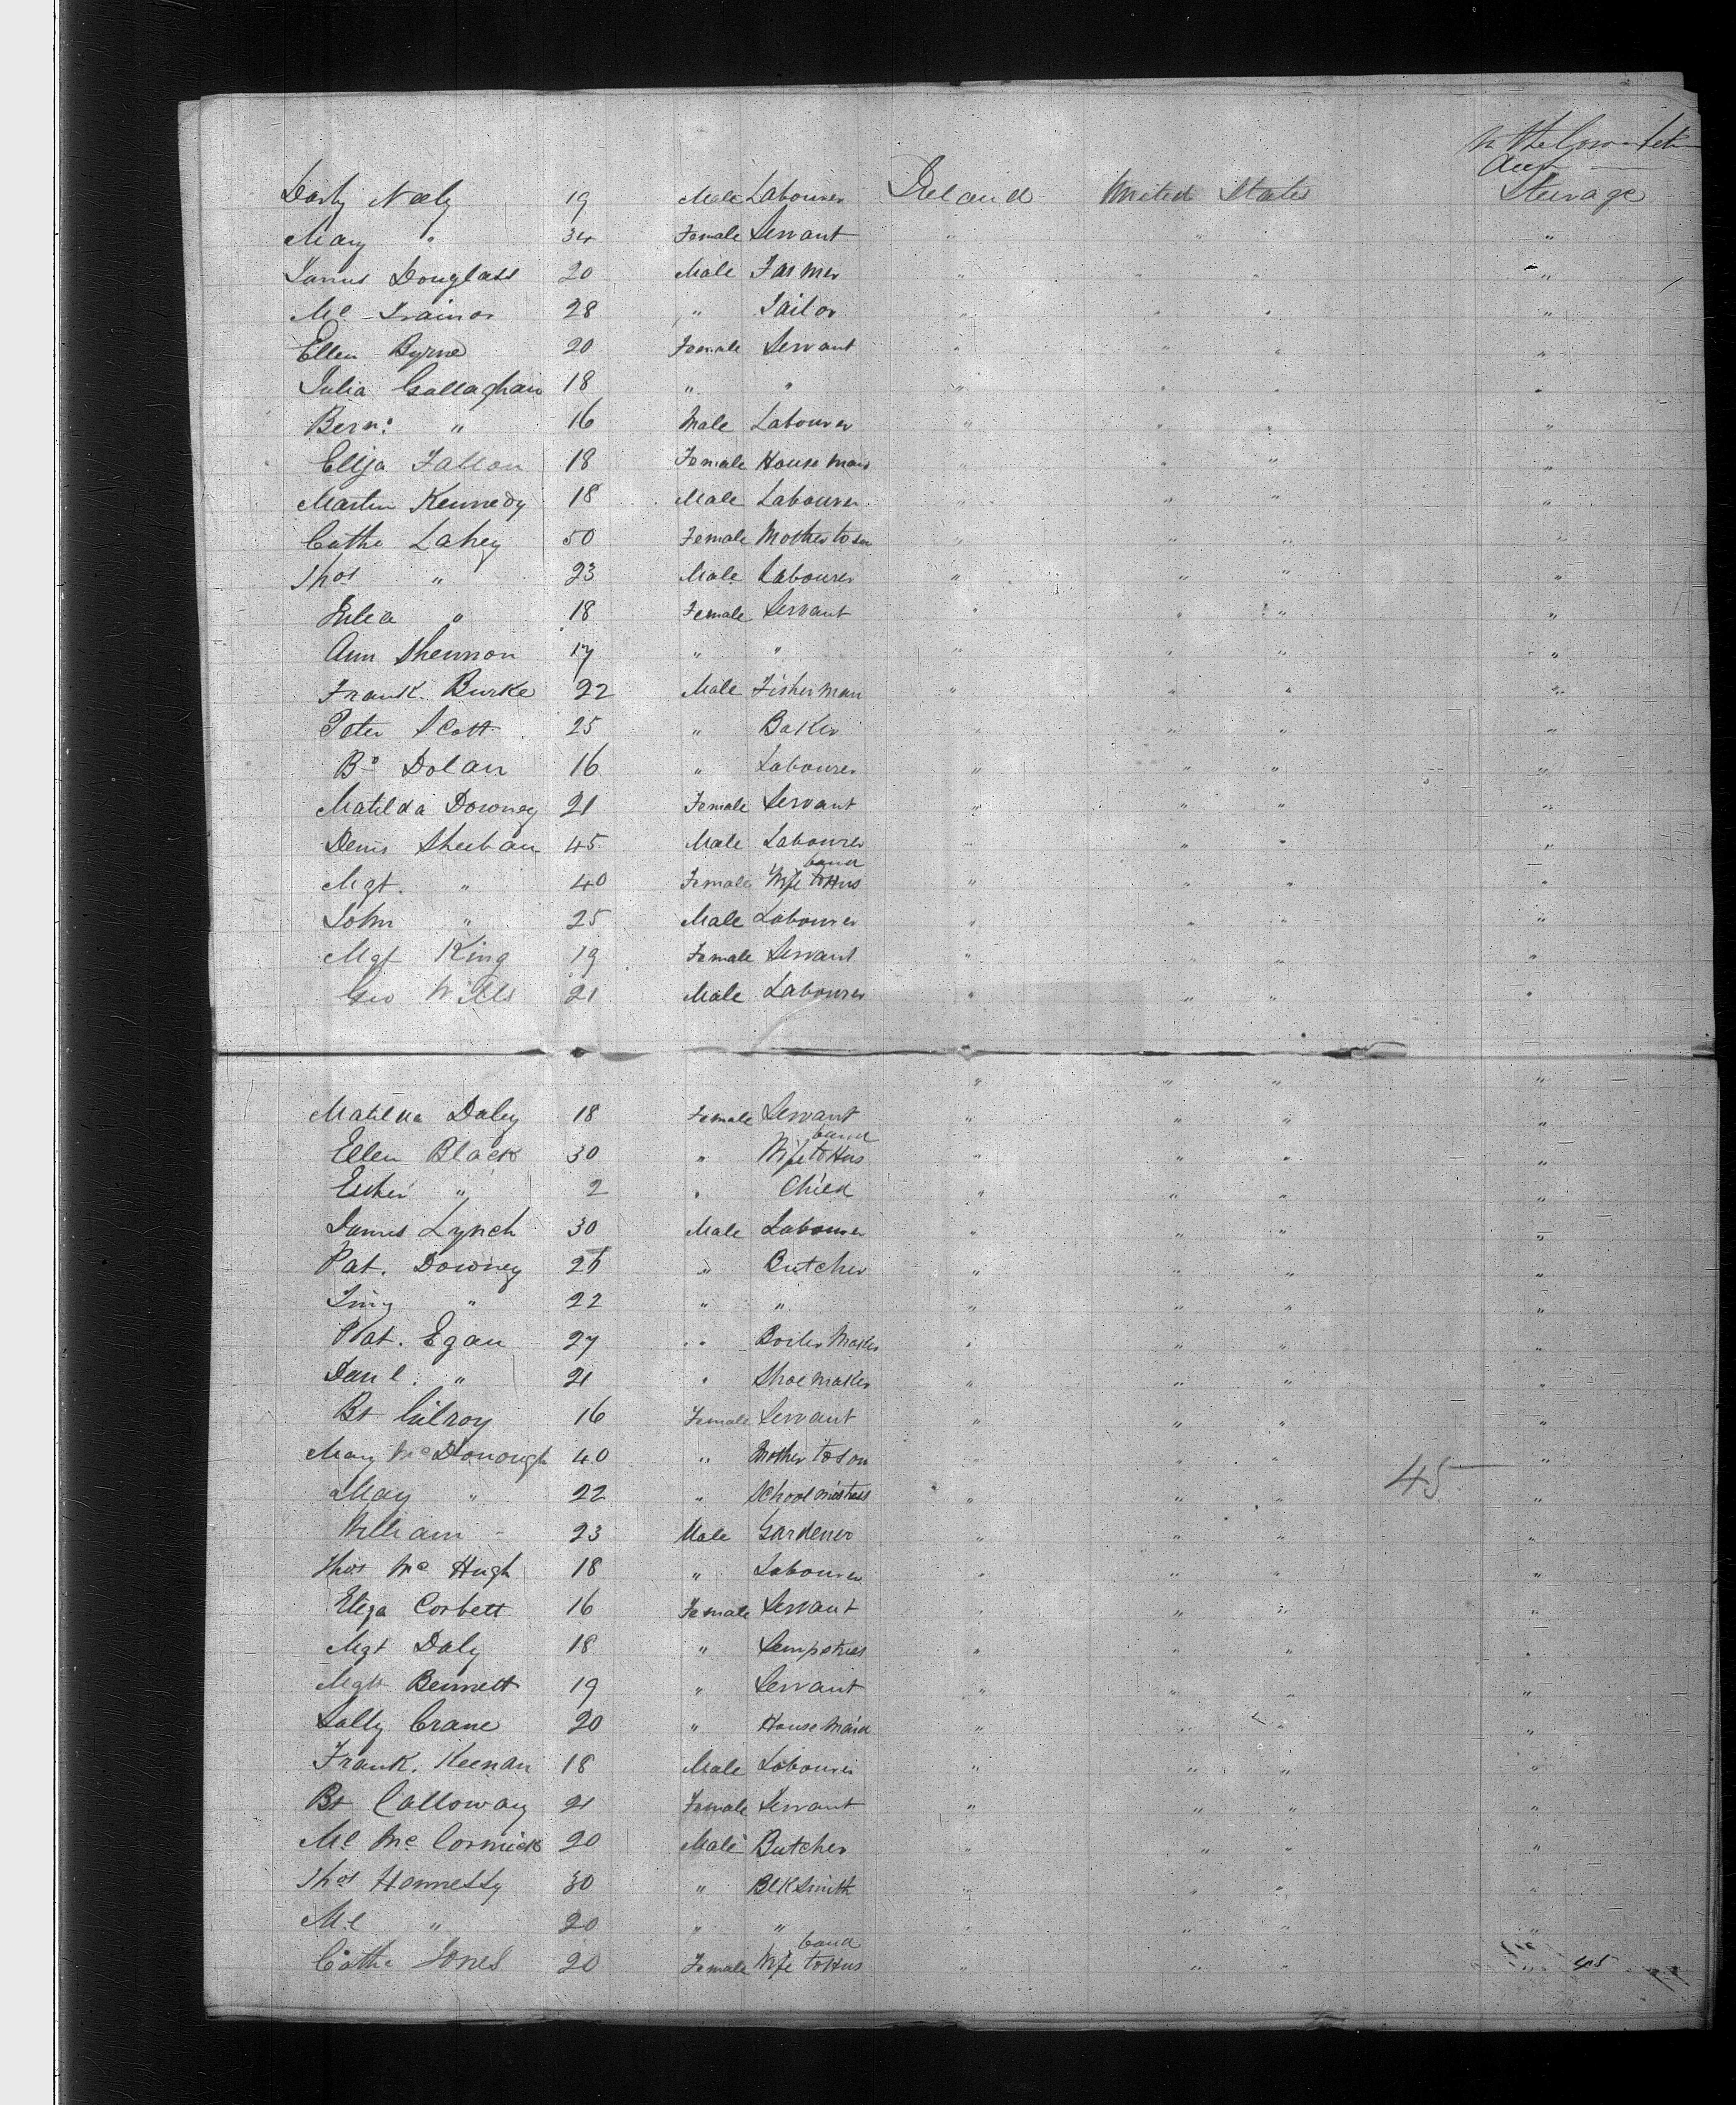 Darby Neely 19 Male Labourer Ireland United States Steerage
Mary " 34 Female Servant " " "
James Douglass 20 Male Farmer " " " "
Ml Trainor 28 " Tailor " " " "
Ellen Byrne 20 Female Servant " " " "
Julia Gallaghan 18 " " " " " "
Bern: " 16 Male Labourer " " " "
Eliza Fallon 18 Female House Maid " " " "
Martin Kennedy 18 Male Labourer " " " "
Cathe Lahey 50 Female Mother to Son " " " "
Thos " 23 Male Labourer " " " "
Julia " 18 Female Servant " " " "
Ann Shennon 17 " " " " " "
Frank. Burke 22 Male Fisherman " " " "
Peter Scott 25 " Baker " " " "
Bd Dolan 16 " Labourer " " " "
Matilda Downey 21 Female Servant " " " "
Denis Sheehan 45 Male Labourer " " " "
Mgt. " 40 Female Wife to Husband " " " "
John " 25 Male Labourer " " " "
Mgt King 19 Female Servant " " " "
Geo Wills 21 Male Labourer " " " "
" " " "
Matilda Daley 18 Female Servant " " " "
Ellen Black 30 " Wife to Husband " " " "
Esther " 2 " Child " " " "
James Lynch 30 Male Labourer " " " "
Pat. Downey 25 " Butcher " " " "
" 22 " " " " " "
Pat. Egan 27 " Boiler Maker " " " "
Danl. " 21 " Shoemaker " " " "
Bt Gilroy 16 Female Servant " " " "
Mary McDonough 40 " Mother to Son " " " "
May " 22 " School mistress " " " 45 "
William " 23 Male Gardener " " " "
Thos McHugh 18 " Labourer " " " "
Eliza Corbett 16 Female Servant " " " "
Mgt Daly 18 " Sempstress " " " "
Mgt Bennett 19 " Servant " " " "
Sally Crane 20 " House Maid " " " "
Frank. Keenan 18 Male Labourer " " " "
Bt Calloway 21 Female Servant " " " "
Ml McCormick 20 Male Butcher " " " "
Thos Hennessy 30 " Blksmith " " " "
Ml " 20 " " " " " "
Cathe Jones 20 Female Wife to Husband " " " " 45